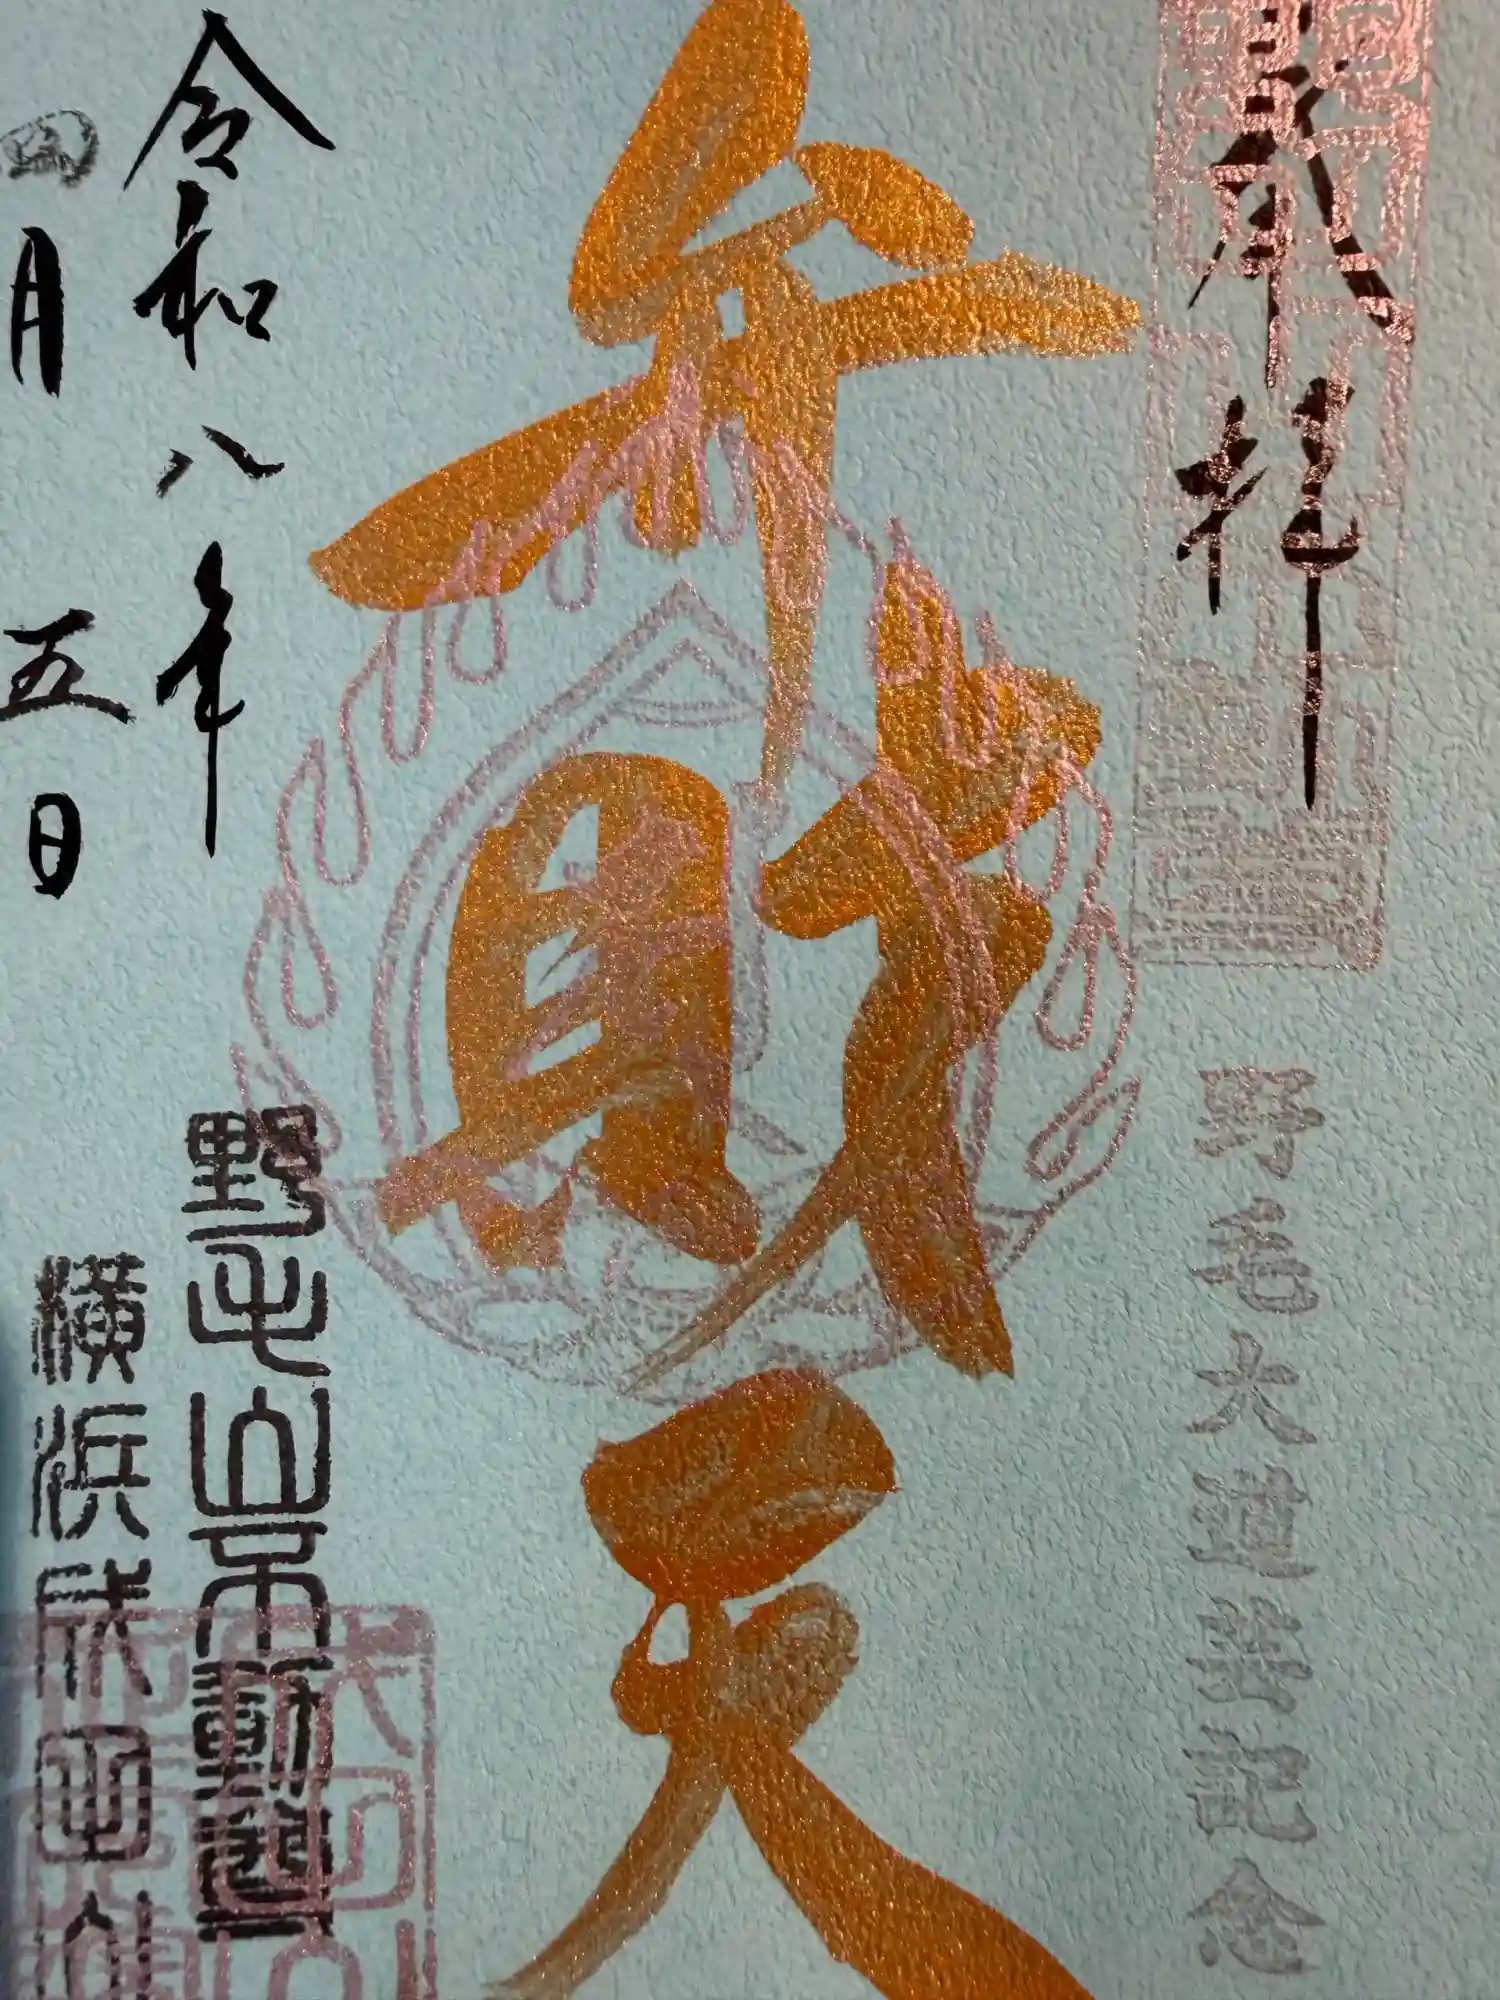 奉拝
野毛大道芸記念
弁財天
令和八年
四月五日
野毛山不動尊
横浜成田山